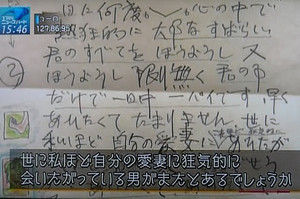 15:46
ユーロ
127.86.95
日に何度か 心の中で
熱狂的に 大好なすばらしい
君のすべてを ほうようし 又
②
ほうようし 限り無く 君の事
だけで一日中 一パイです、早く
あれたくて たまりません、世に
私ほど 自分の愛妻に
世に私ほど自分の愛妻に狂気的に
会いたがっている男がまたとあるでしょうか